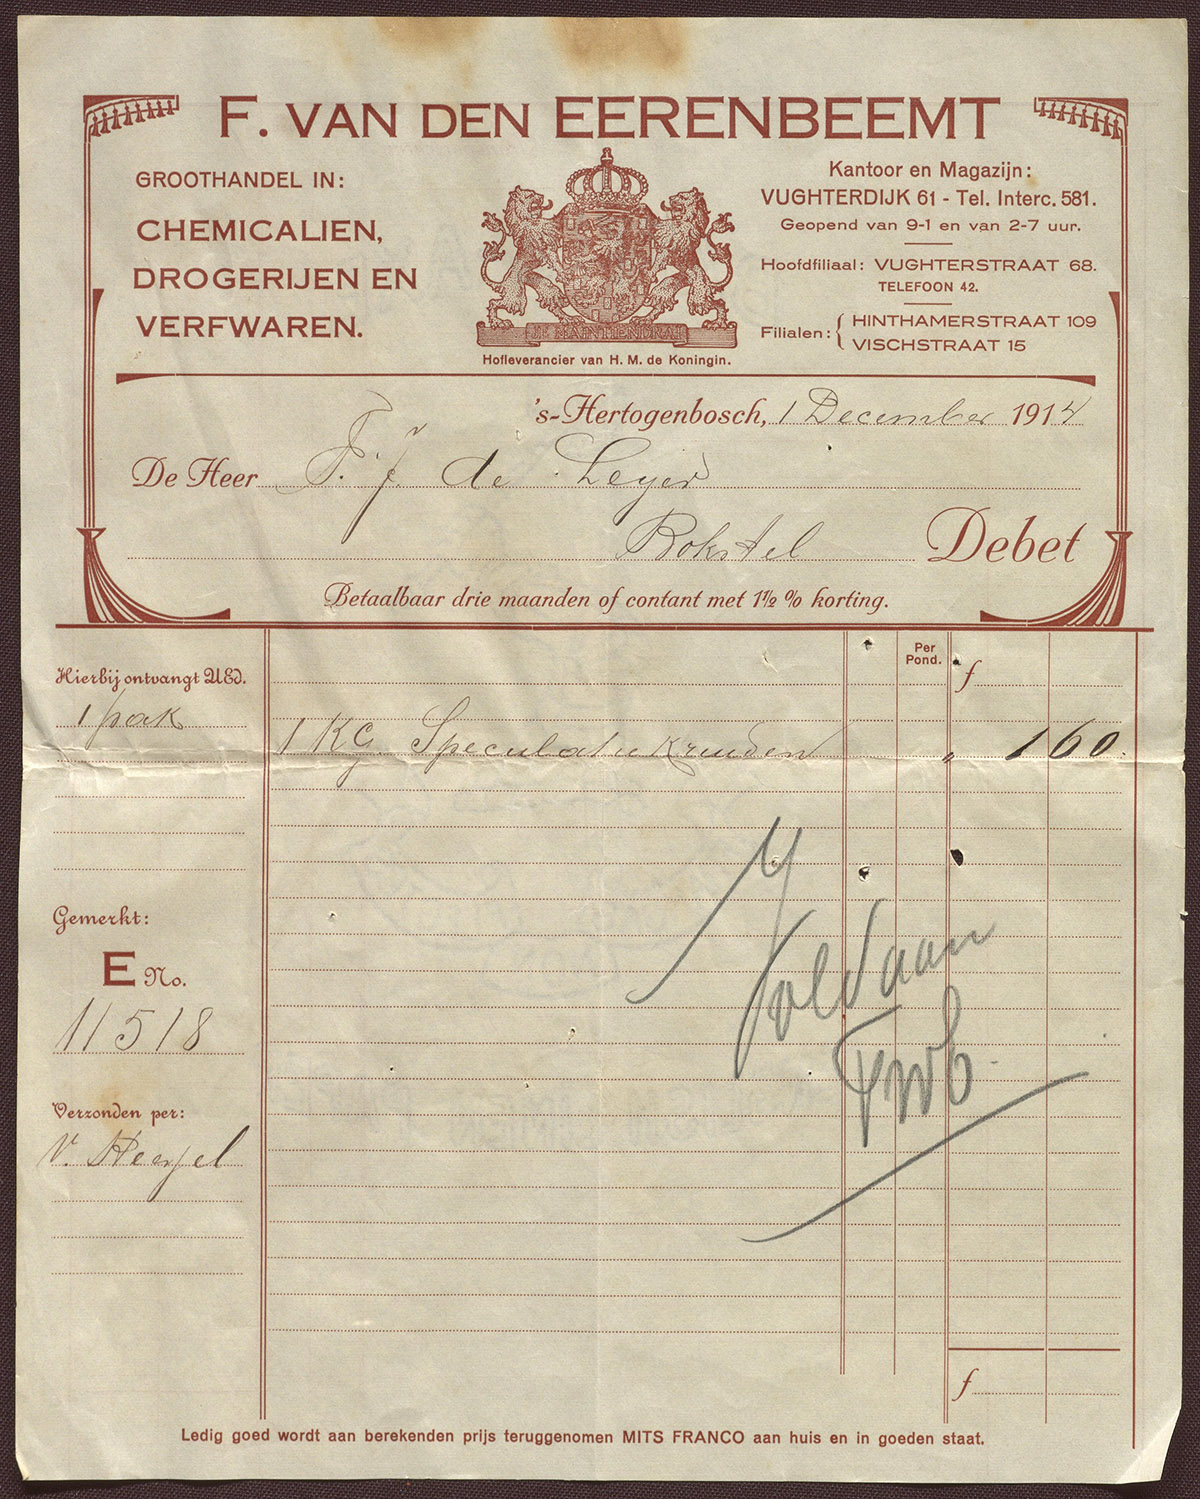 F. VAN DEN EERENBEEMT
GROOTHANDEL IN:
CHEMICALIEN,
DROGERIJEN EN
VERFWAREN.
JE MAINTIENDRAI
Hofleverancier van H. M. de Koningin.
Kantoor en Magazijn:
VUGHTERDIJK 61 - Tel. Interc. 581.
Geopend van 9-1 en van 2-7 uur.
Hoofdfiliaal: VUGHTERSTRAAT 68.
TELEFOON 42.
Filialen: { HINTHAMERSTRAAT 109
VISCHSTRAAT 15
's-Hertogenbosch, 1 December 1914
De Heer F. J. de Leyer
Bokstel Debet
Betaalbaar drie maanden of contant met 1½ % korting.
Hierbij ontvangt UEd.
1 pak
Per
Pond.
f
1 KG. Speculatiekruiden " 1 60.
Voldaan
Gemerkt:
E No.
11518
Verzonden per:
f
Ledig goed wordt aan berekenden prijs teruggenomen MITS FRANCO aan huis en in goeden staat.